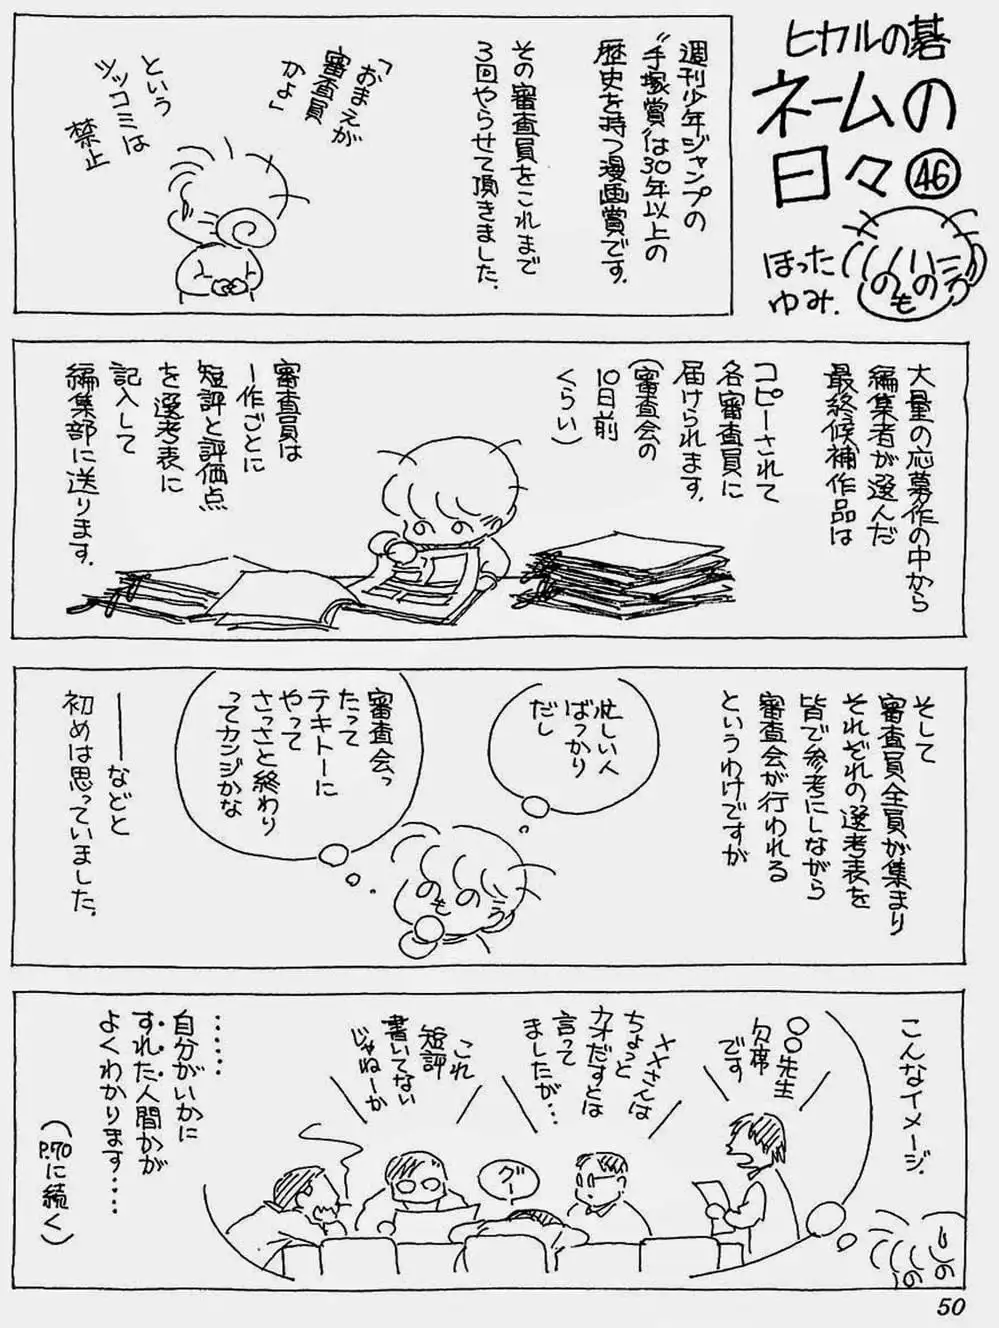 ヒカルの碁
ネームの
日々㊻
ほった
ゆみ.
週刊少年ジャンプの
〝手塚賞〟は30年以上の
歴史を持つ漫画賞です.
その審査員をこれまで
3回やらせて頂きました.
「おまえが
審査員
かよ」
という
ツッコミは
禁止
大量の応募作の中から
編集者が選んだ
最終候補作品は
コピーされて
各審査員に
届けられます.
(審査会の
10日前
くらい)
審査員は
一作ごとに
短評と評価点
を選考表に
記入して
編集部に送ります.
そして
審査員全員が集まり
それぞれの選考表を
皆で参考にしながら
審査会が行われる
というわけですが
忙しい人
ばっかり
だし
審査会っ
たって
テキトーに
やって
さっさと終わり
ってカンジかな
――などと
初めは思っていました.
こんなイメージ.
〇〇先生
欠席
です
××さんは
ちょっと
カオだすとは
言って
ましたが…
グー
これ
短評
書いてない
じゃねーか
……
自分がいかに
すれた人間かが
よくわかります‥‥
(P.70に続く)
50